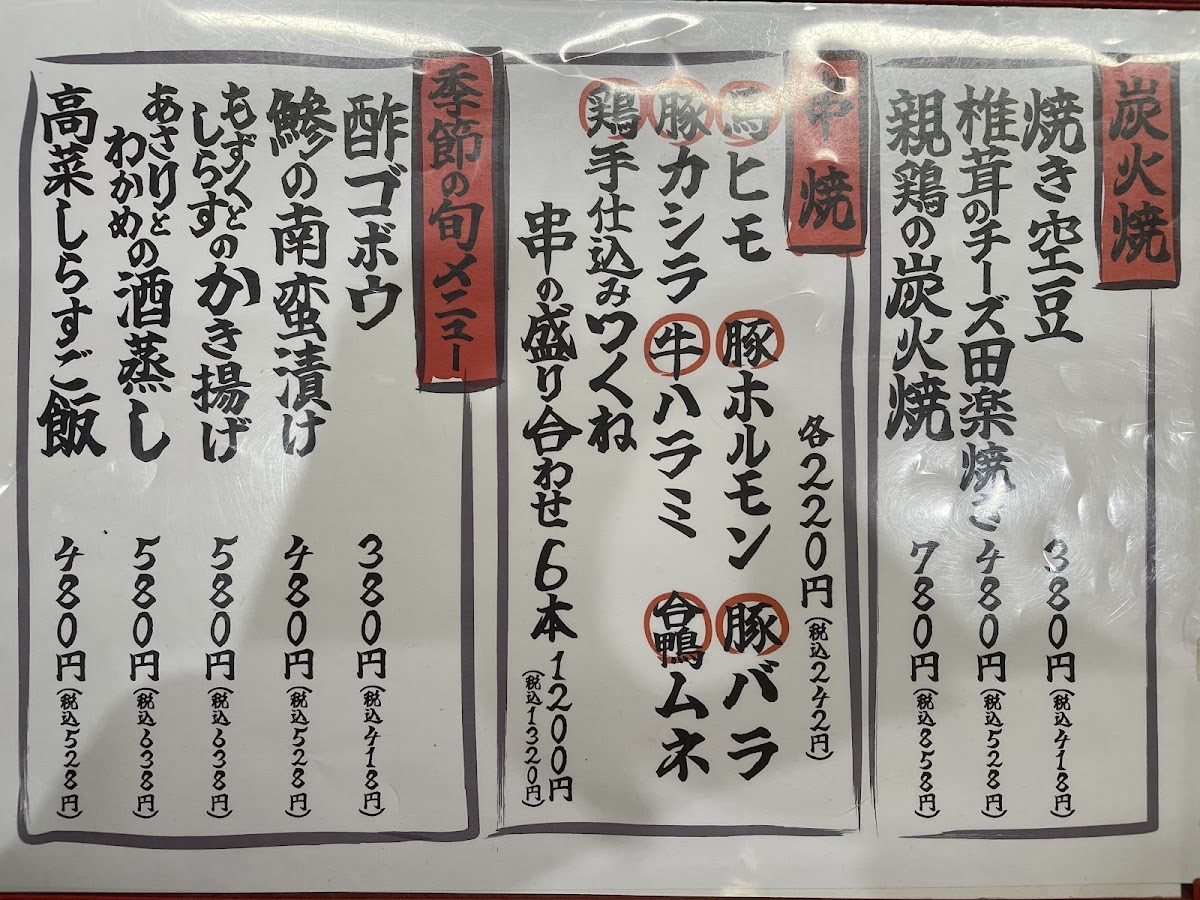 炭火焼
焼き空豆 380円(税込418円)
椎茸のチーズ田楽焼き 480円(税込528円)
親鶏の炭火焼 780円(税込858円)
串焼
各220円(税込242円)
馬ヒモ 豚ホルモン 豚バラ
豚カシラ 牛ハラミ 合鴨ムネ
鶏手仕込みつくね
串の盛り合わせ6本 1200円
(税込1320円)
季節の旬メニュー
酢ゴボウ 380円(税込418円)
鯵の南蛮漬け 480円(税込528円)
もずくとしらすのかき揚げ 580円(税込638円)
あさりとわかめの酒蒸し 580円(税込638円)
高菜しらすご飯 480円(税込528円)